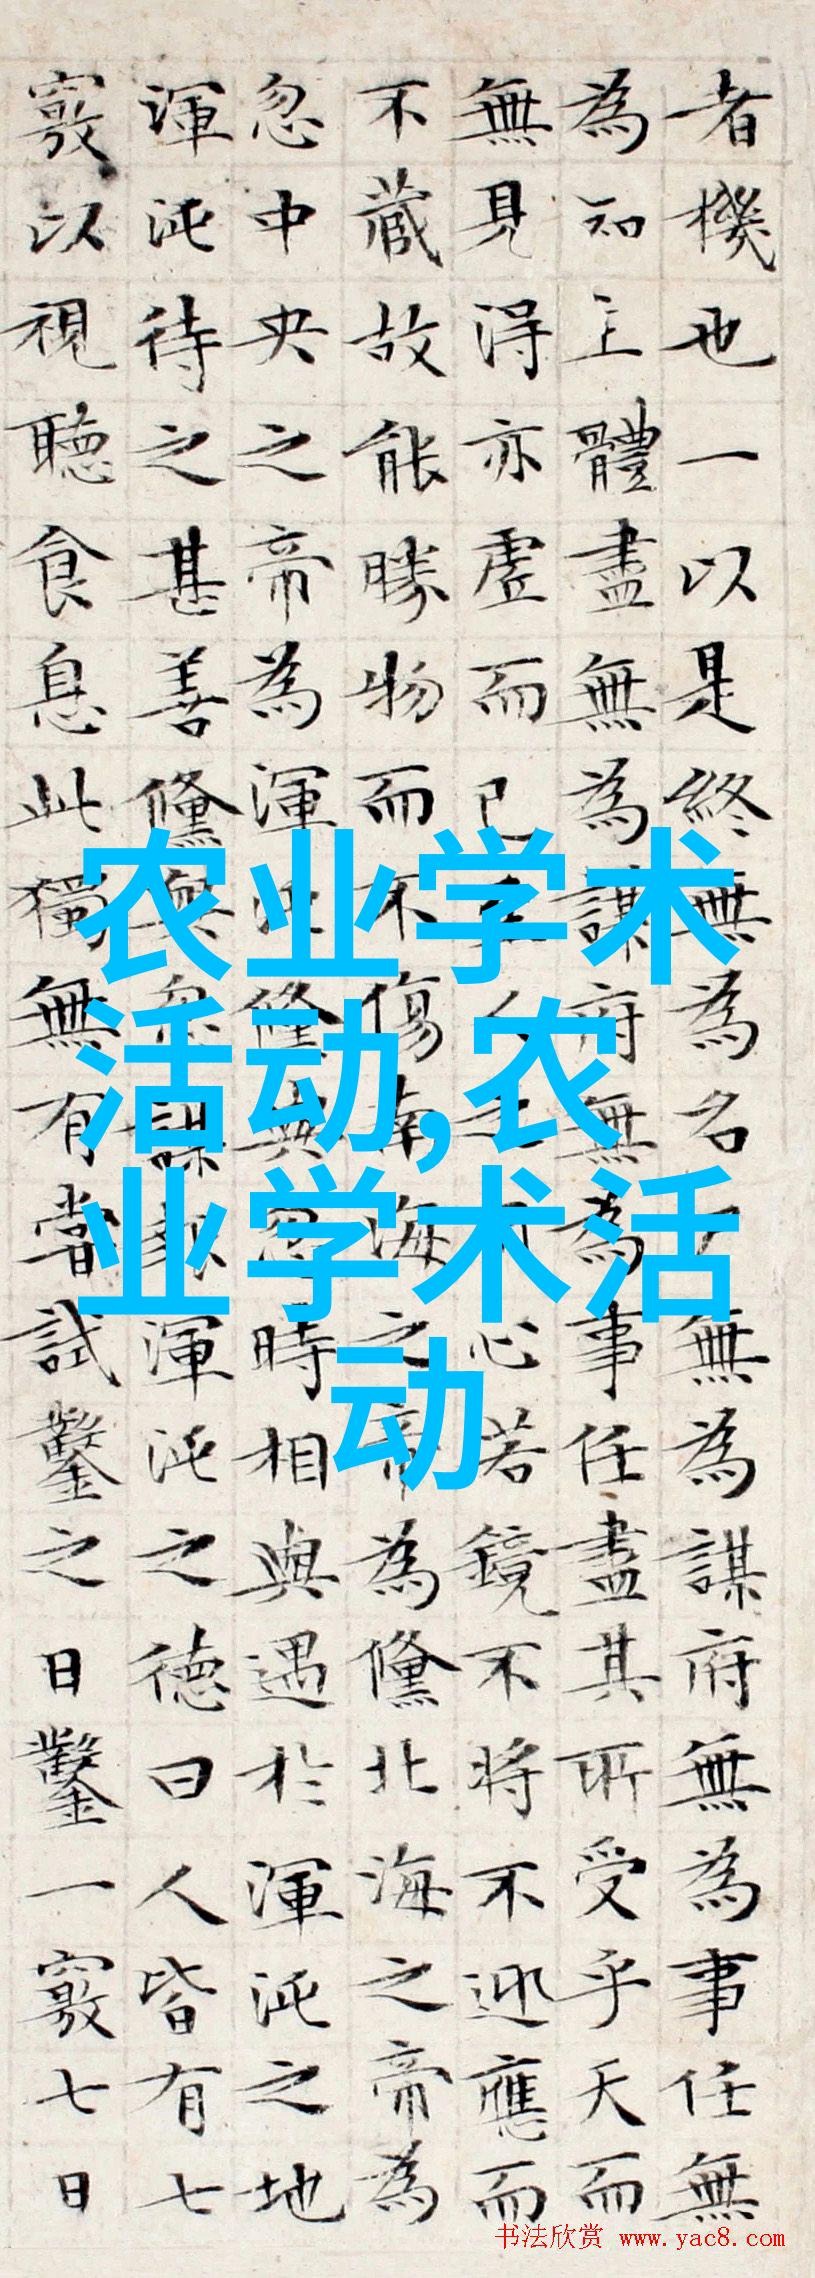 者機也一以是終無為名無為謀府無為事任無
為知主體盡無為謀府無為事任盡其所受乎天而
無見得亦虛而已人之心若鏡不將不迎應而
不藏故能勝物而不傷南海之帝為儵北海之帝為
忽中央之帝為渾沌儵與忽時相與遇於渾沌之地
渾沌待之甚善儵與忽謀報渾沌之德曰人皆有七
竅以視聽食息此獨無有嘗試鑿之日鑿一竅七日
农业学术
活动,农
业学术活
动
书法欣赏 www.yac8.com